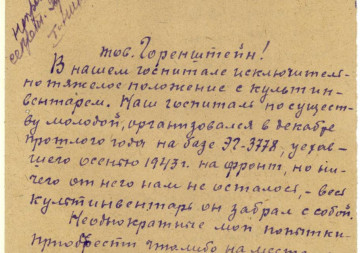 тов. Горенштейн!
В нашем госпитале исключитель-
но тяжелое положение с культин-
вентарем. Наш госпиталь по сущест-
ву молодой, организовался в декабре
прошлого года на базе ЭГ-3778, уехав-
шего осенью 1943 г. на фронт, но ни-
чего от него нам не осталось, - весь
культинвентарь он забрал с собой.
Неоднократные мои попытки
приобрести что либо на месте